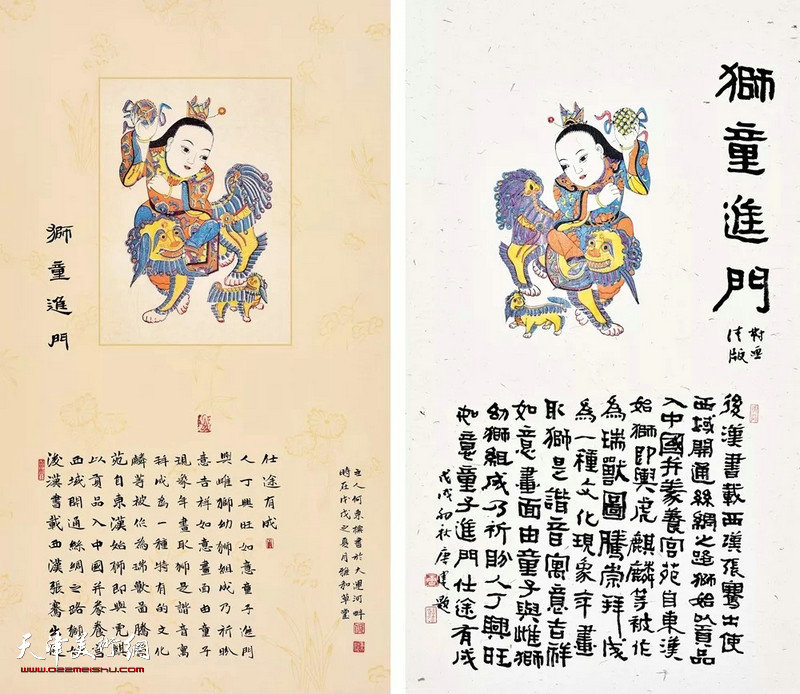 獅童進門
後漢書載西漢張騫出使
西域開通絲綢之路獅始
以貢品入中國并豢養宮
苑自東漢始獅即與虎麒
麟等被作為瑞獸圖騰
科成為一種特有的文化
現象年畫取獅是諧音寓
意吉祥如意畫面由童子
與雌獅幼獅組成乃祈盼
人丁興旺如意童子進門
仕途有成
主人何東撰書於大運河畔
時在戊戌之夏月雅和草堂
獅童進門
清版
後漢書載西漢張騫出使
西域開通絲綢之路獅始以貢品
入中國并豢養宮苑自東漢
始獅即與虎麒麟等被作
為瑞獸圖騰崇拜成
為一種文化現象年畫
取獅是諧音寓意吉祥
如意畫面由童子與雌獅
幼獅組成乃祈盼人丁興旺
如意童子進門仕途有成
戊戌初秋唐建題
天津美術網